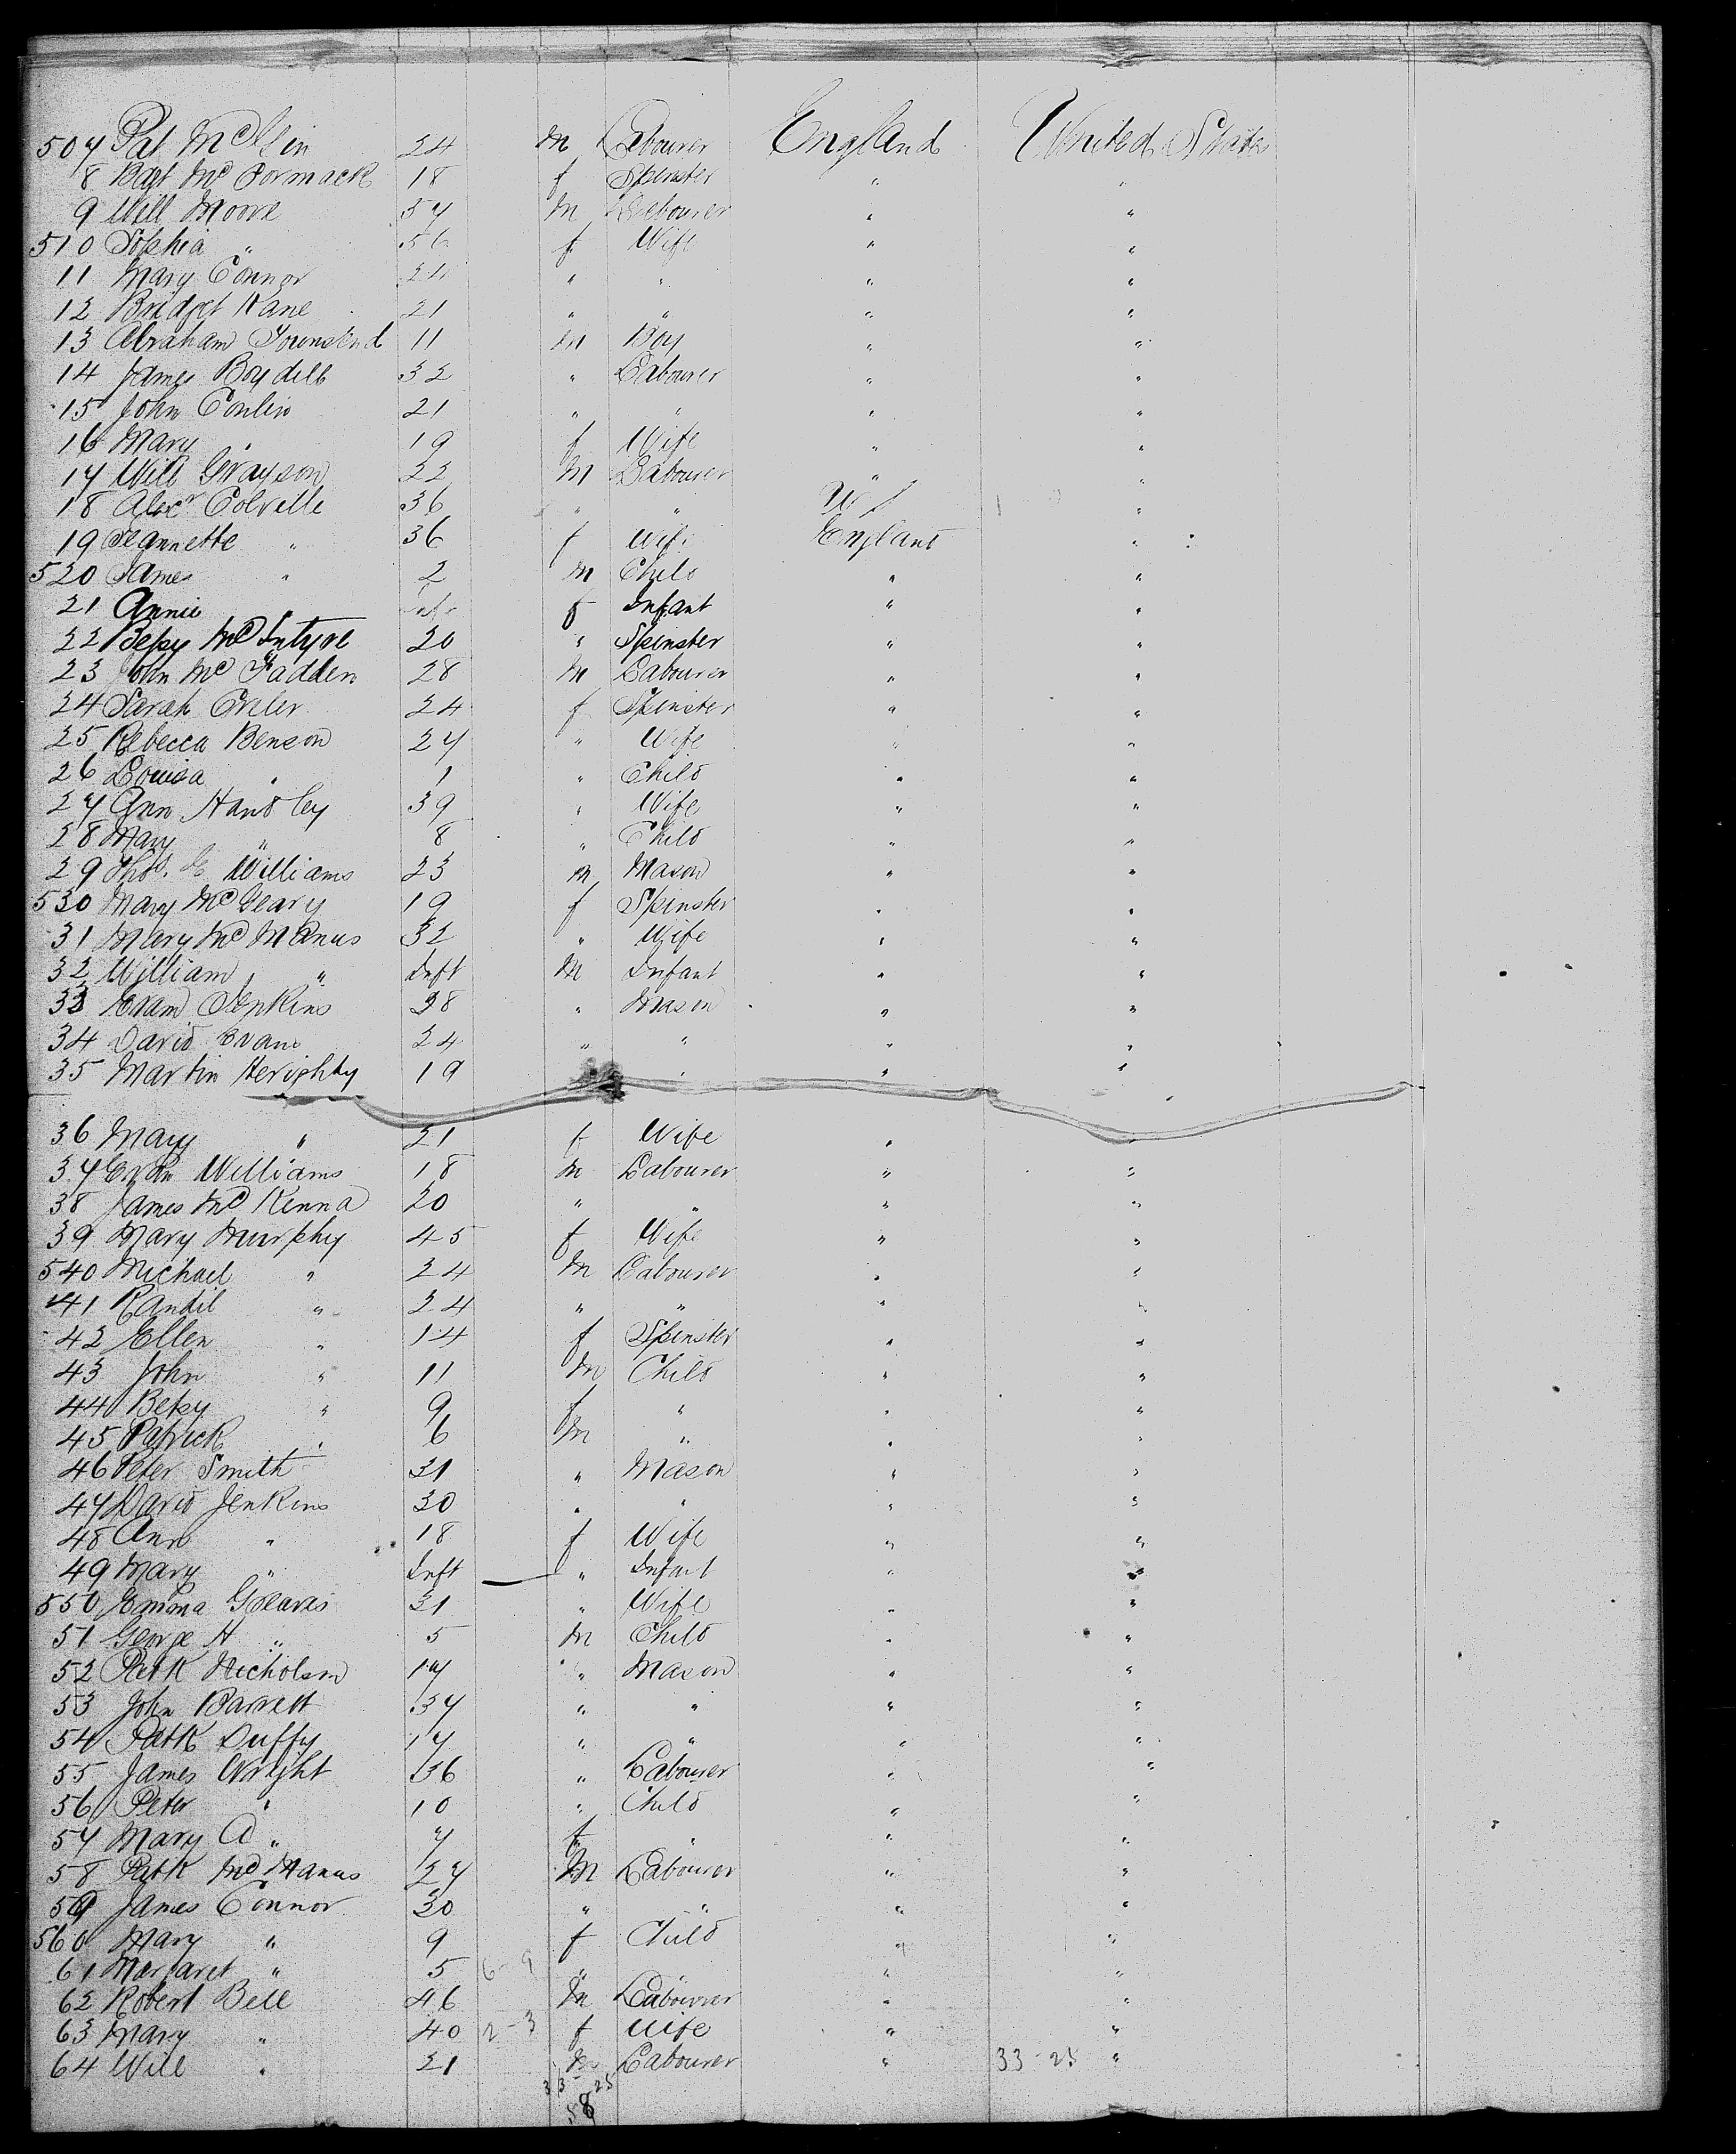 507 Pat McGlin 24 m Labourer England United States
8 Bagt McCormack 18 f Spinster " "
9 Will Moore 57 m Labourer " "
510 Sophia " 56 f Wife " "
11 Mary Connor 21 " " " "
12 Bridget Kane 21 " " " "
13 Abraham Townsend 11 m Boy " "
14 James Boydell 32 " Labourer " "
15 John Conlin 21 " " " "
16 Mary " 19 f Wife " "
17 Will Grayson 22 m Labourer " "
18 Alexr Colville 36 " " U S "
19 Jeannette " 36 f Wife England "
520 James " 2 m Child " "
21 Annie f Infant " "
22 Betsy McIntyre 20 " Spinster " "
23 John McFadden 28 m Labourer " "
24 Sarah 24 f Spinster " "
25 Rebecca Benson 27 " Wife " "
26 Louisa " 1 " Child " "
27 Ann Handley 39 " Wife " "
28 Mary " 8 " Child " "
29 Thos. Williams 23 m Mason " "
530 Mary McGeary 19 f Spinster " "
31 Mary McManus 32 " Wife " "
32 William " Inft m Infant " "
33 Evan Jenkins 38 " Mason " "
34 David Evans 24 " " " "
35 Martin Herighty 19 " " "
36 Mary " 21 f Wife " "
37 Evan Williams 18 m Labourer " "
38 James McKenna 20 " " " "
39 Mary Murphy 45 f Wife " "
540 Michael " 24 m Labourer " "
41 Randil " 24 " " " "
42 Ellen " 14 f Spinster " "
43 John " 11 m Child " "
44 Betsy " 9 f " " "
45 Patrick " 6 m " " "
46 Peter Smith 31 " Mason " "
47 David Jenkins 30 " " " "
48 Ann " 18 f Wife " "
49 Mary " Inft " Infant " "
550 Emma Greaves 31 " Wife " "
51 George H " 5 m Child " "
52 Patk Nicholson 17 " Mason " "
53 John Barrett 37 " " " "
54 Patk Duffy 17 " " " "
55 James Wright 36 " Labourer " "
56 Peter " 10 " Child " "
57 Mary A " 7 f " " "
58 Patk McManus 27 m Labourer " "
59 James Connor 30 " " " "
560 Mary " 9 f Child " "
61 Margaret " 5 6-9 " " " "
62 Robert Bell 46 m Labourer " "
63 Mary " 40 2-3 f Wife " "
64 Will " 21 m Labourer " 33-25 "
33-25
58